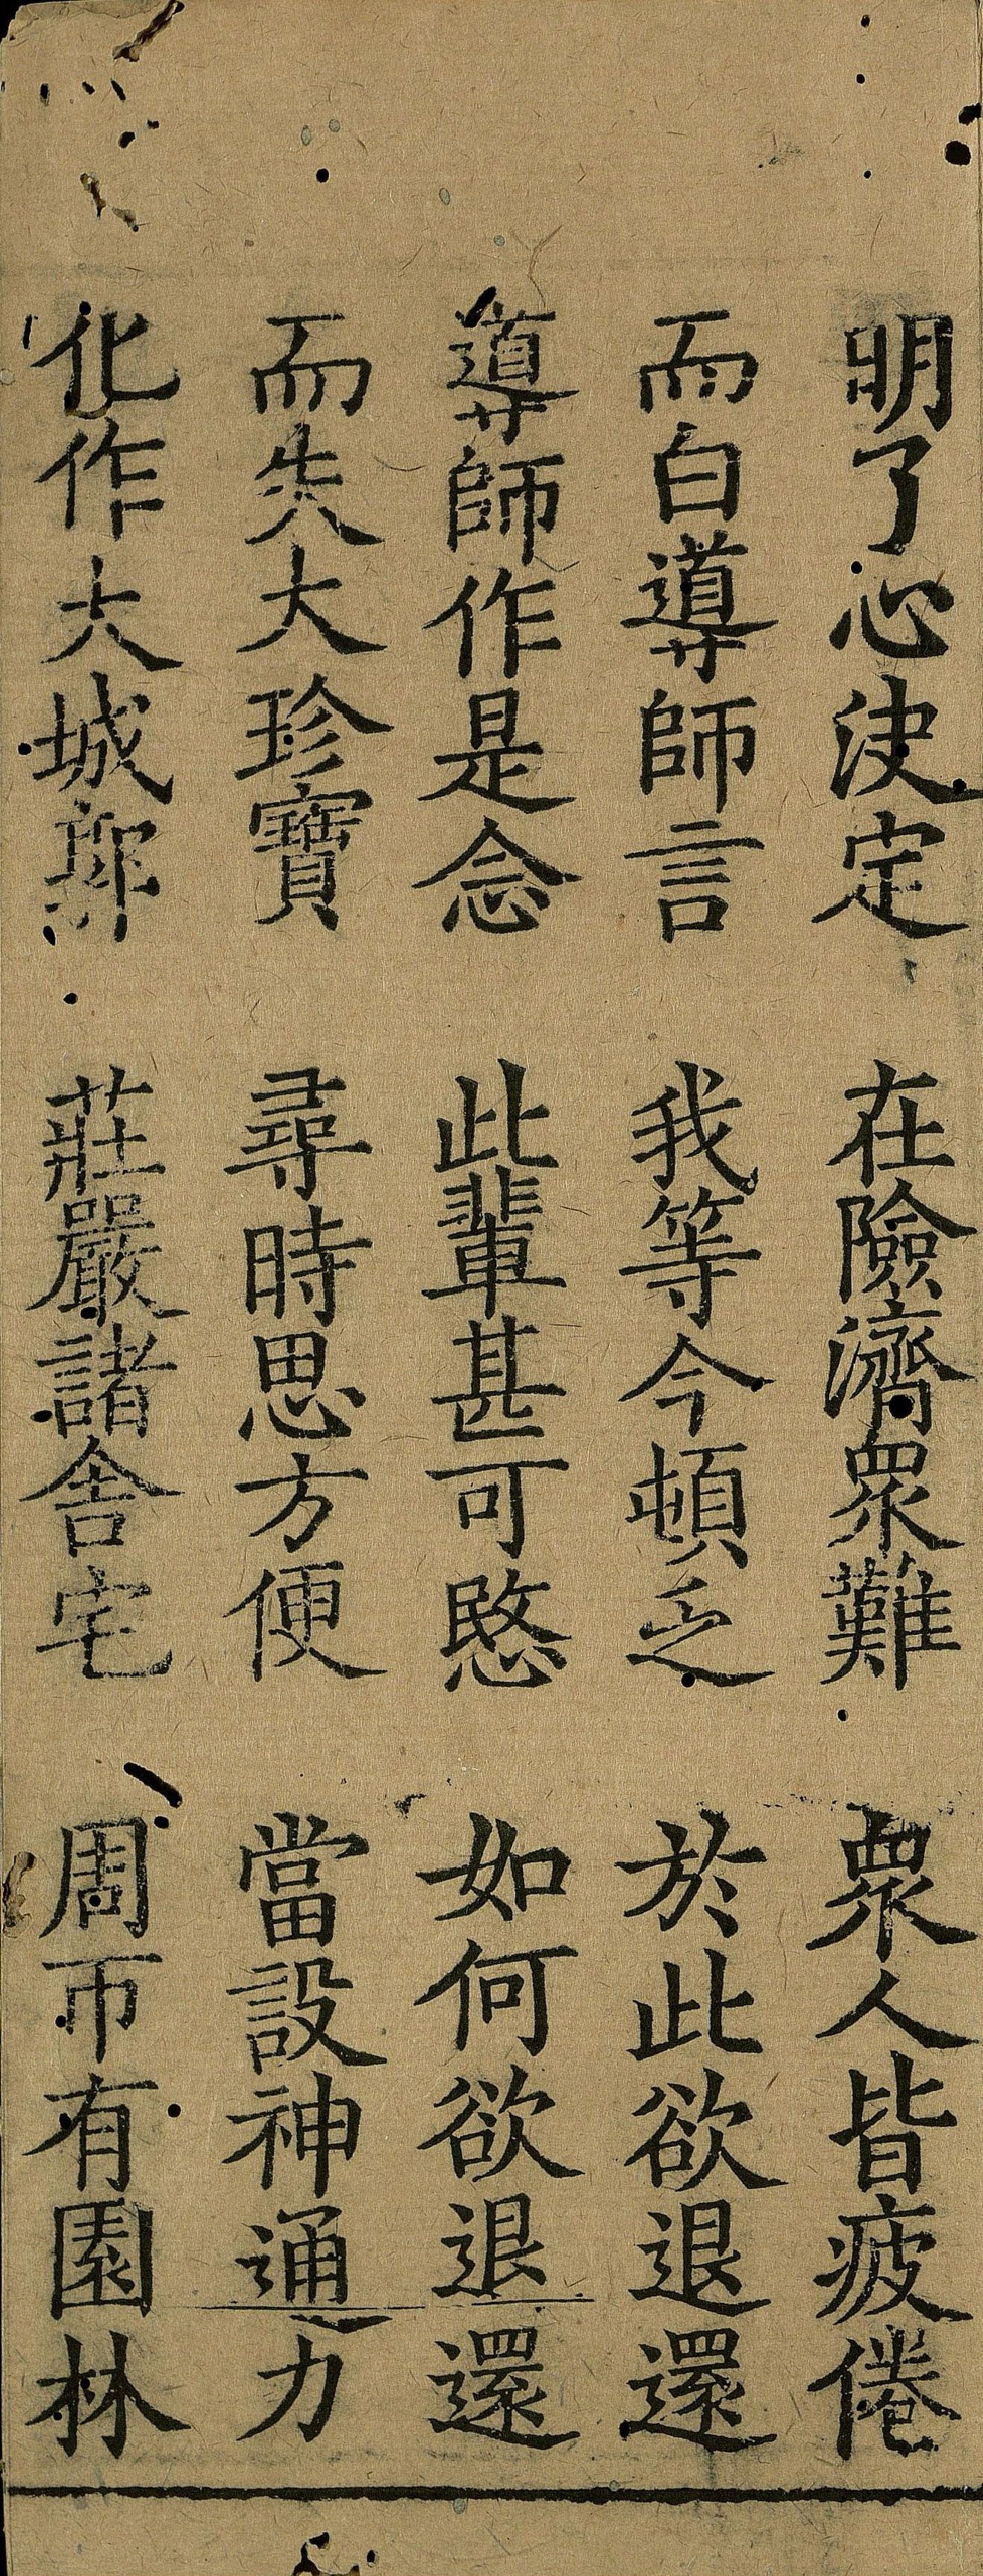 明了心決定 在險濟衆難 衆人皆疲倦
而白導師言 我等今頓乏 於此欲退還
導師作是念 此輩甚可愍 如何欲退還
而失大珍寶 尋時思方便 當設神通力
化作大城郭 莊嚴諸舍宅 周帀有園林